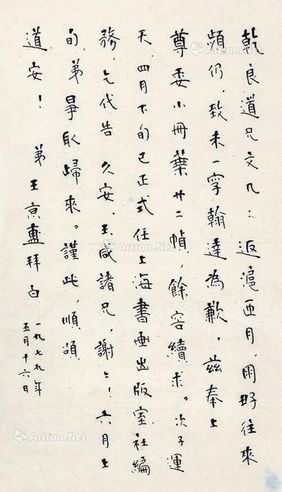 乾良道兄文几：返滬兩月，朋好往來
頻仍，致未一字翰達為歉。茲奉上
尊委小冊葉廿二幀，餘容續求。次子運
天四月下旬已正式任上海書畫出版室社編
務，乞代告久安、王咸諸兄，謝謝！六月上
旬，弟畢取歸來。謹此，順頌
道安！
弟王京盙拜白
一九七九年
五月十六日
Artron.Net